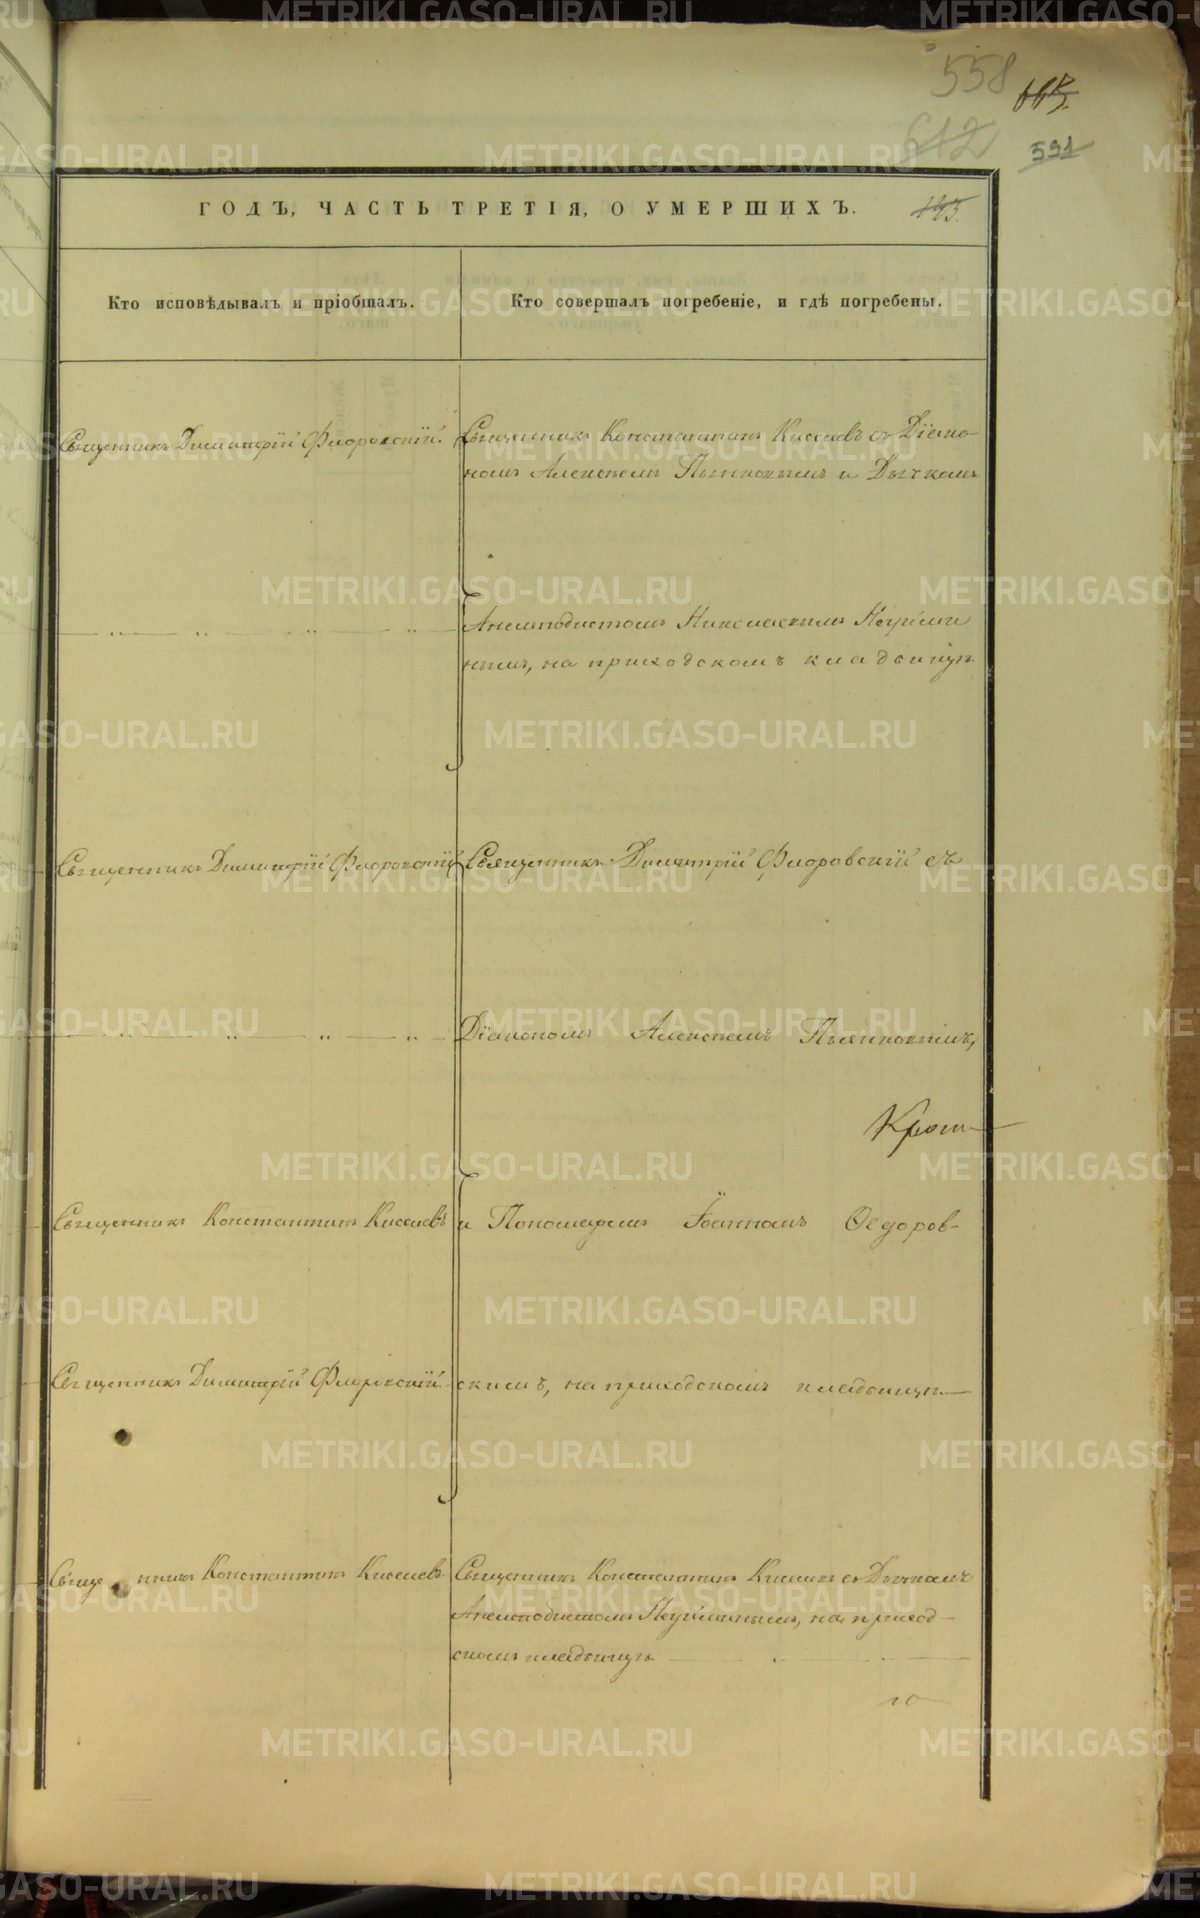 558
591
ГОДЪ, ЧАСТЬ ТРЕТІЯ, О УМЕРШИХЪ.
Кто исповѣдывалъ и пріобщалъ.
Кто совершалъ погребеніе, и гдѣ погребены.
Священникъ Димитрій Флоровскій.
Священникъ Константинъ Киселевъ съ Діако-
номъ Алексѣемъ Пьянковымъ и Дьячкомъ
Анемподистомъ Николаевымъ
нымъ, на приходскомъ кладбищѣ.
Священникъ Димитрій Флоровскій
Священникъ Димитрій Флоровскій съ
Діакономъ Алексѣемъ Пьянковымъ,
Священникъ Константинъ Киселевъ
и Пономаремъ Іоанномъ Ѳедоров-
Священникъ Димитрій Флоровскій.
скимъ, на приходскомъ кладбищѣ.
Священникъ Константинъ Киселевъ
Священникъ Константинъ Киселевъ съ Дьячкомъ
Анемподистомъ на приход-
скомъ кладбищѣ.
METRIKI.GASO-URAL.RU